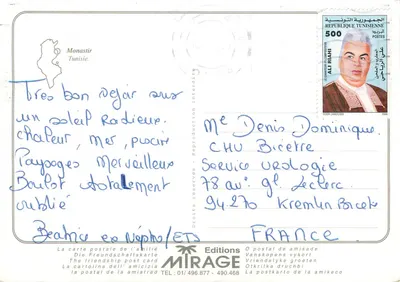 Monastir
Tunisie
الجمهورية التونسية
REPUBLIQUE TUNISIENNE
500
ALI RIAHI
علي الرياحي
Très bon séjour sous
un soleil Radieux.
chaleur, mer, piscine
Paysages Merveilleux
Boulot totalement
oublié
Beatrice ex Népho/ED
Mc Denis Dominique
CHU Bicetre
Service urologie
78 av. gl. Leclerc
94270 Kremlin Bicetre
FRANCE
La carte postale de l'amitié
Die Freundschaftskarte
The friendship post card
La cartolina dell' amicizia
Editions
MIRAGE
TEL.: 01/ 496.877 - 490.468
O postal de amizade
Vanskapens vykort
Vriendelijke groeten
La postkarta de la amiseco